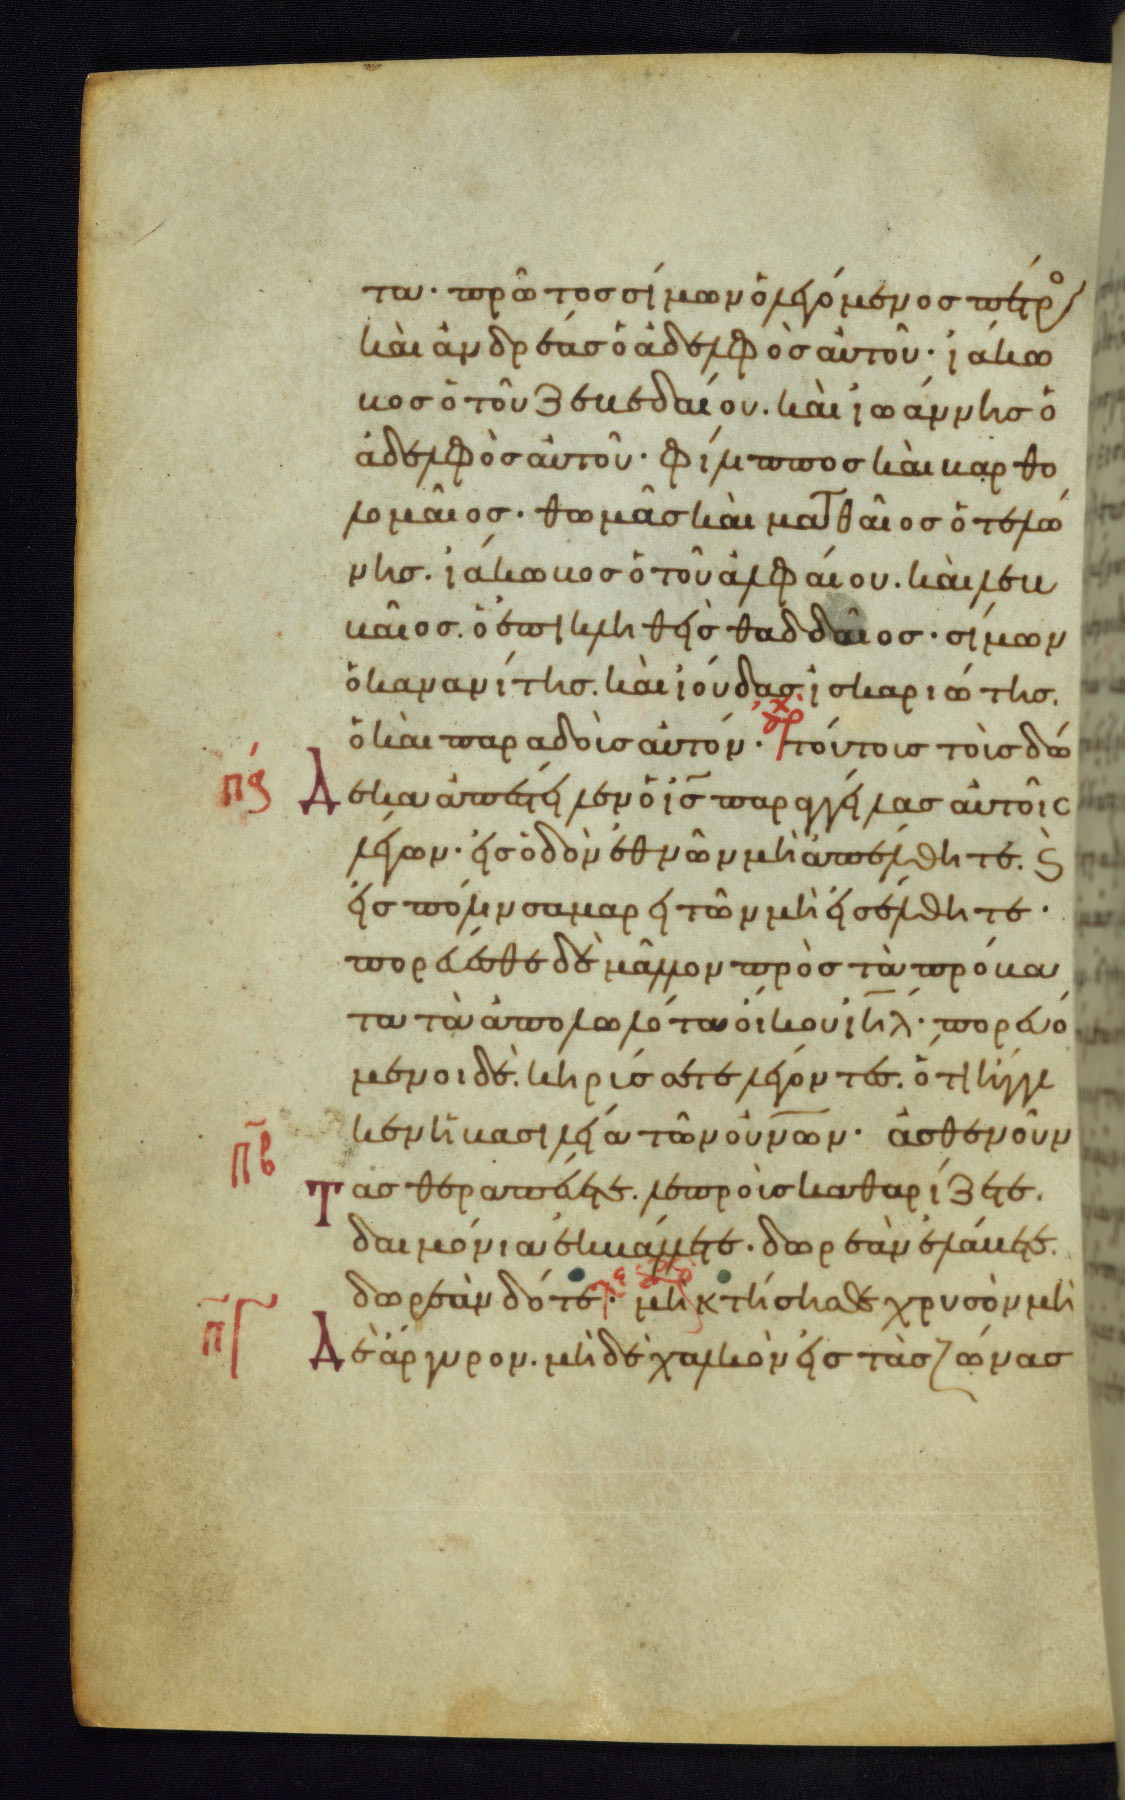 τα· πρῶτος σίμων ὁ λεγόμενος πέτρο
καὶ ἀνδρέας ὁ ἀδελφὸς αὐτοῦ· ἰάκω
βος ὁ τοῦ ζεβεδαίου. καὶ ἰωάννης ὁ
ἀδελφὸς αὐτοῦ· φίλιππος καὶ βαρθο
λομαῖος· θωμᾶς καὶ ματθαῖος ὁ τελώ
νης. ἰάκωβος ὁ τοῦ ἀλφαίου. καὶ λεβ
βαῖος. ὁ ἐπικληθεὶς θαδδαῖος· σίμων
ὁ κανανίτης. καὶ ἰούδας ἰσκαριώτης.
ὁ καὶ παραδοὺς αὐτόν· τούτους τοὺς δώ
π͵ϛ Δεκα ἀπέστειλεν ὁ ις̅ παραγγείλας αὐτοῖς
λέγων· εἰς ὁδὸν ἐθνῶν μὴ ἀπέλθητε. ϗ
εἰς πόλιν σαμαρειτῶν μὴ εἰσέλθητε·
πορεύεσθε δὲ μᾶλλον πρὸς τὰ πρόβα
τα τὰ ἀπολωλότα οἴκου ιη̅λ· πορευό
μενοι δὲ. κηρύσσετε λέγοντες. ὅτι ἤγγι
κεν ἡ βασιλεία τῶν οὐν̅ων· ἀσθενοῦν
π̅β Τας θεραπεύετε. λεπροὺς καθαρίζετε.
δαιμόνια ἐκβάλλετε· δωρεὰν ἐλάβετε.
δωρεὰν δότε· μὴ κτήσησθε χρυσὸν μὴ
π̅γ Δὲ ἄργυρον. μὴδὲ χαλκὸν εἰς τὰς ζώνας